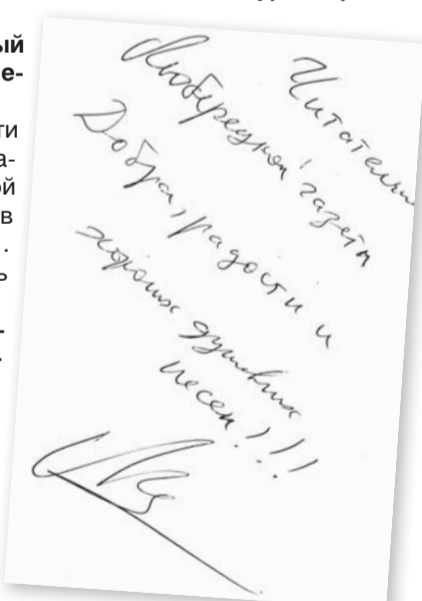 ый
е-
ти
а-
ой
в
.
ь
-
.
Читателям
Люберецкой газеты
Добра, радости и
хороших душевных
песен!!!